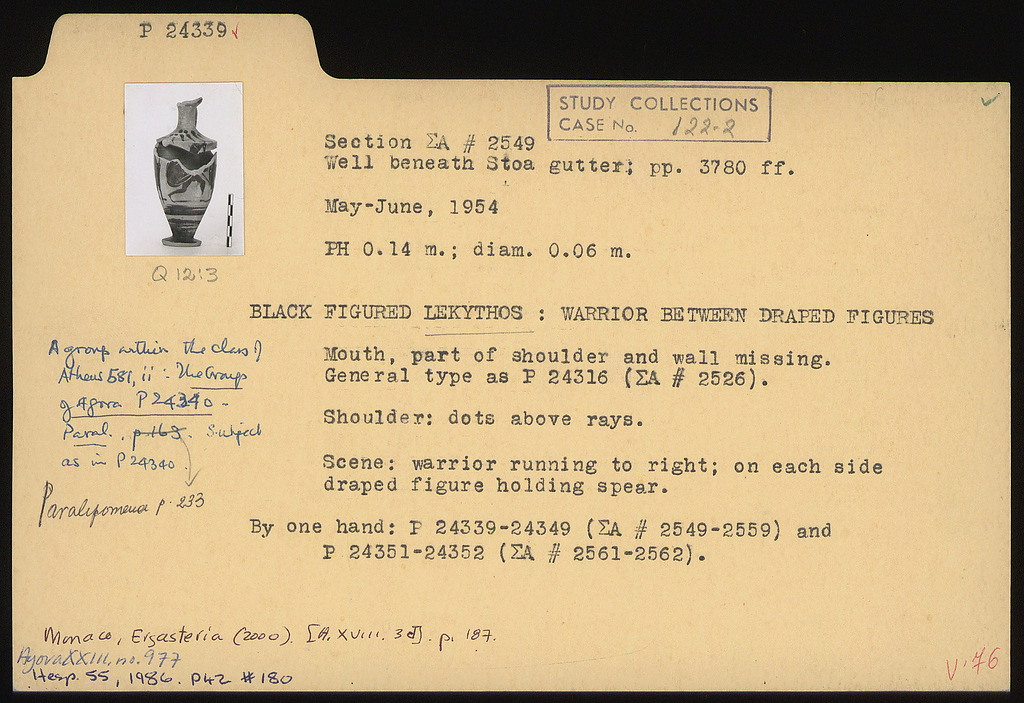 P 24339 ✓
STUDY COLLECTIONS
CASE No. 122-2
Section ΣA # 2549
Well beneath Stoa gutter; pp. 3780 ff.
May-June, 1954
PH 0.14 m.; diam. 0.06 m.
Q 12:3
BLACK FIGURED LEKYTHOS : WARRIOR BETWEEN DRAPED FIGURES
Mouth, part of shoulder and wall missing.
General type as P 24316 (ΣA # 2526).
Shoulder: dots above rays.
Scene: warrior running to right; on each side
draped figure holding spear.
By one hand: P 24339-24349 (ΣA # 2549-2559) and
P 24351-24352 (ΣA # 2561-2562).
A group within the class of
Athens 581, ii : The Group
of Agora P 24340 -
Paral., p. 163. Subject
as in P 24340.
Paralipomena p. 233
Monaco, Ergasteria (2000). [A. XVIII. 3d]. p. 187.
Agora XXIII, no. 977
Hesp. 55, 1986. P42 #180
V '76